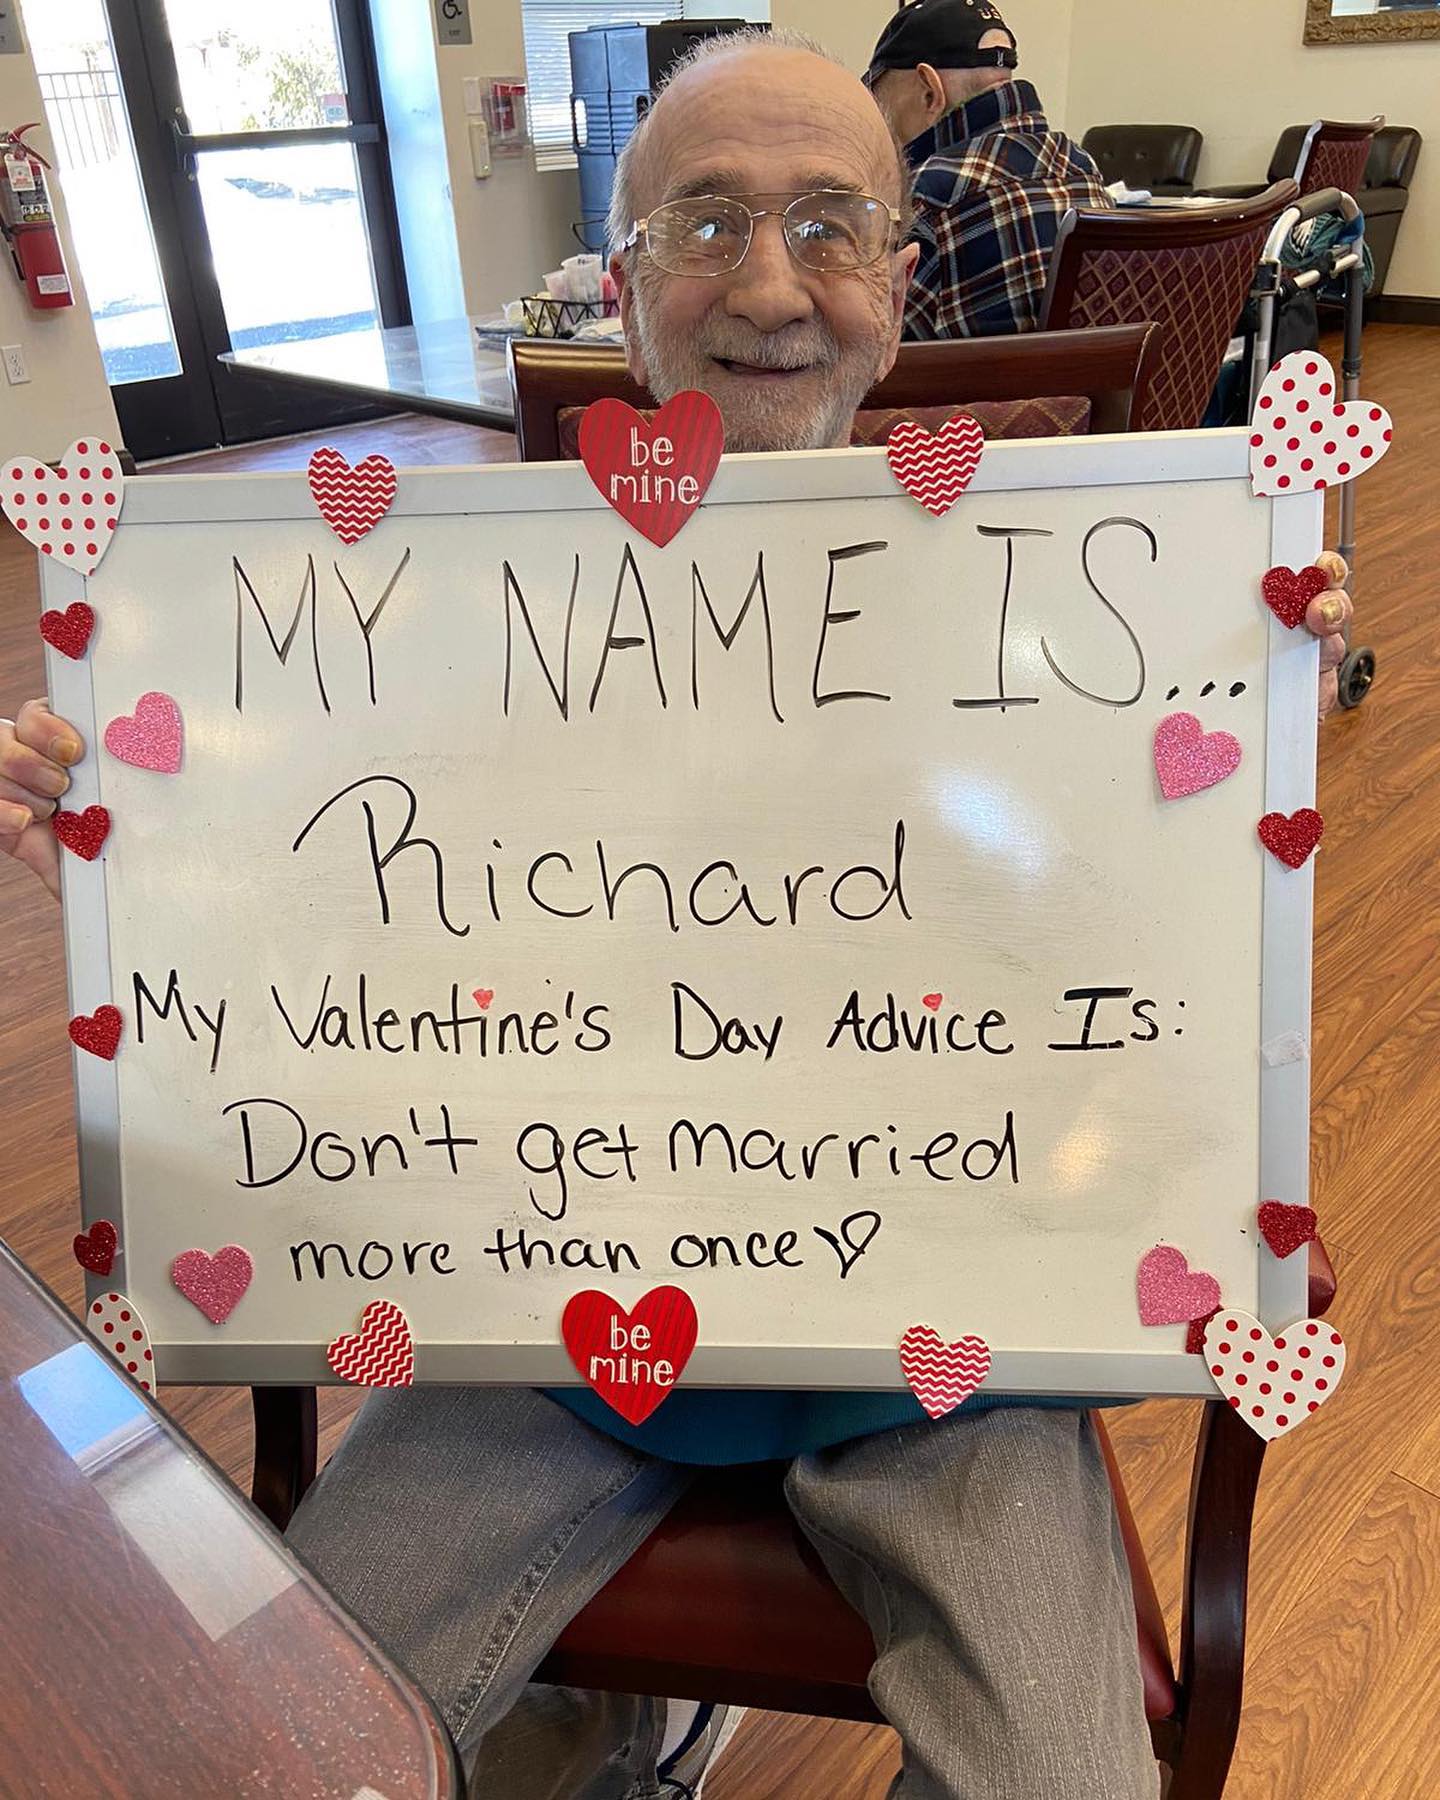 be
mine
MY NAME IS...
Richard
My Valentine's Day Advice Is:
Don't get married
more than once
be
mine